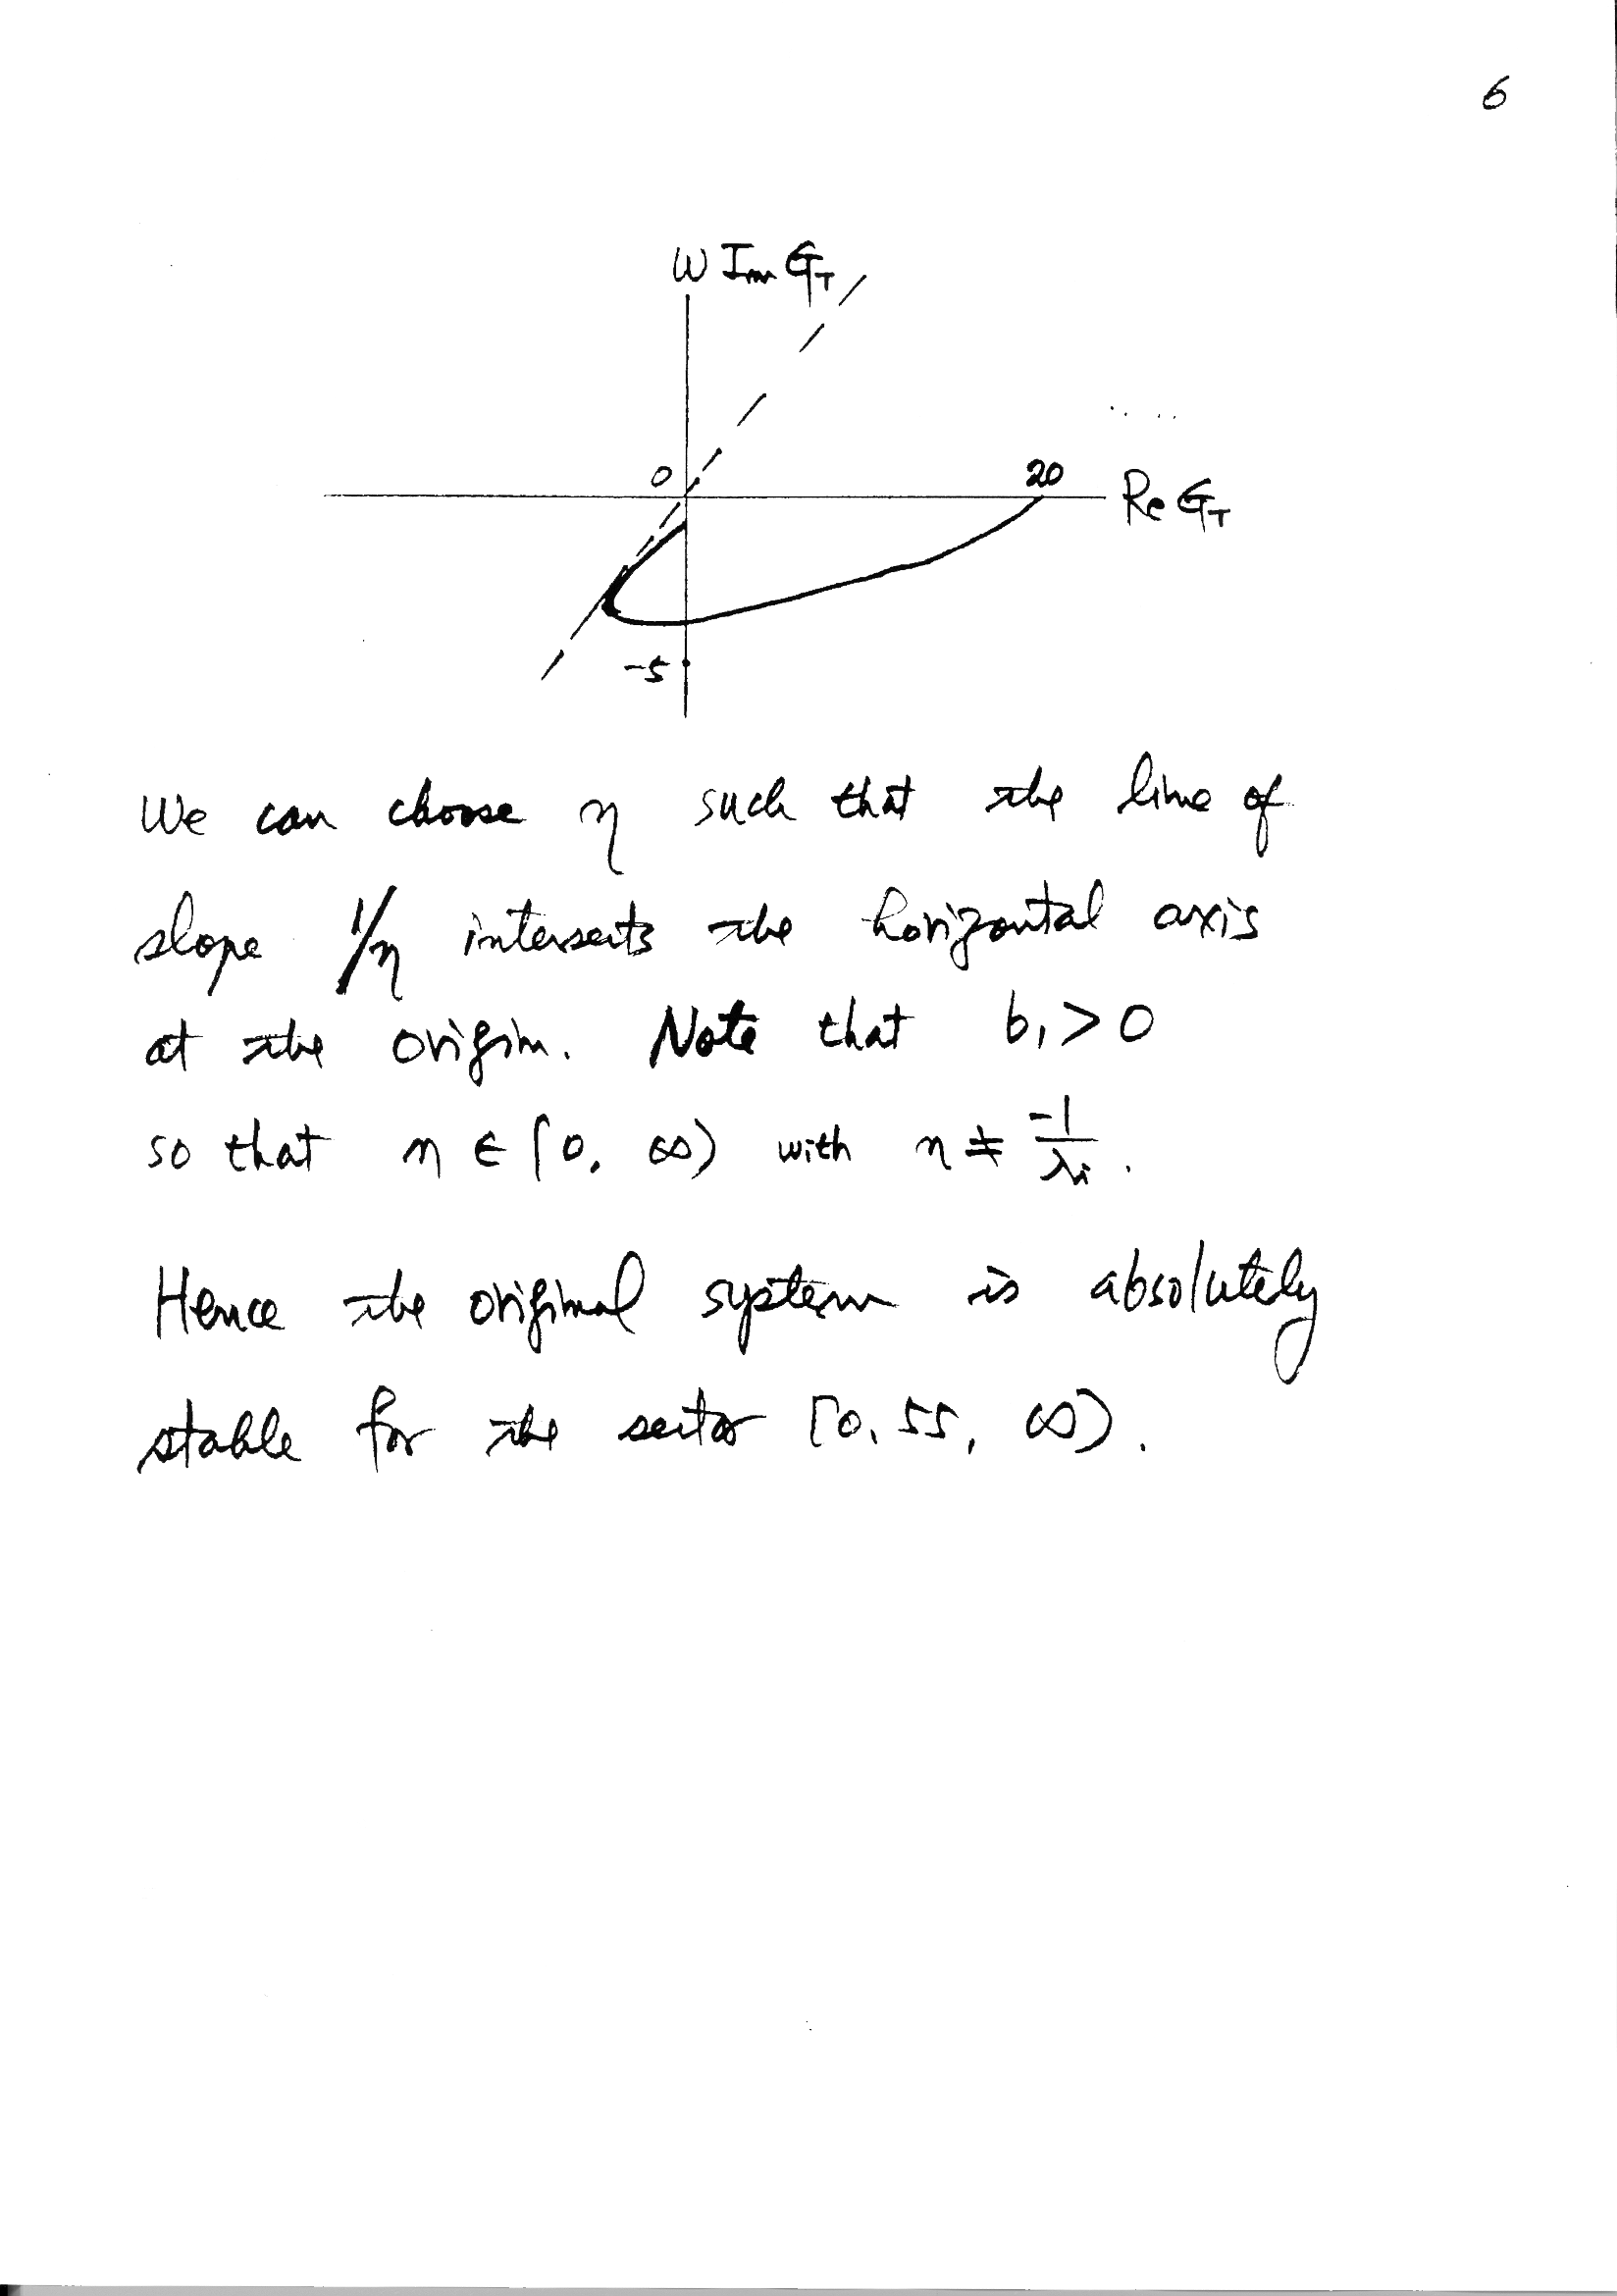 6
ω Im G_T
0
20
Re G_T
-5
We can choose η such that the line of
slope 1/η intersects the horizontal axis
at the origin. Note that b₁ > 0
so that η ∈ [0, ∞) with η ≠ -1/λi.
Hence the original system is absolutely
stable for the sector [0.55, ∞).